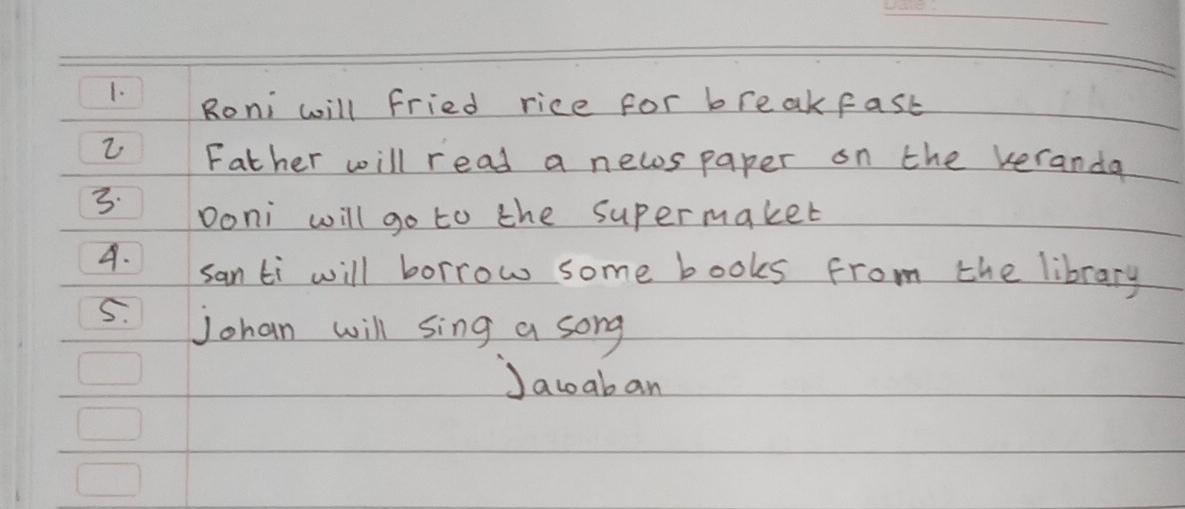 Date:
1. Roni will fried rice for breakfast
2 Father will read a newspaper on the veranda
3. Doni will go to the supermaket
4. santi will borrow some books from the library
5. johan will sing a song
Jawaban